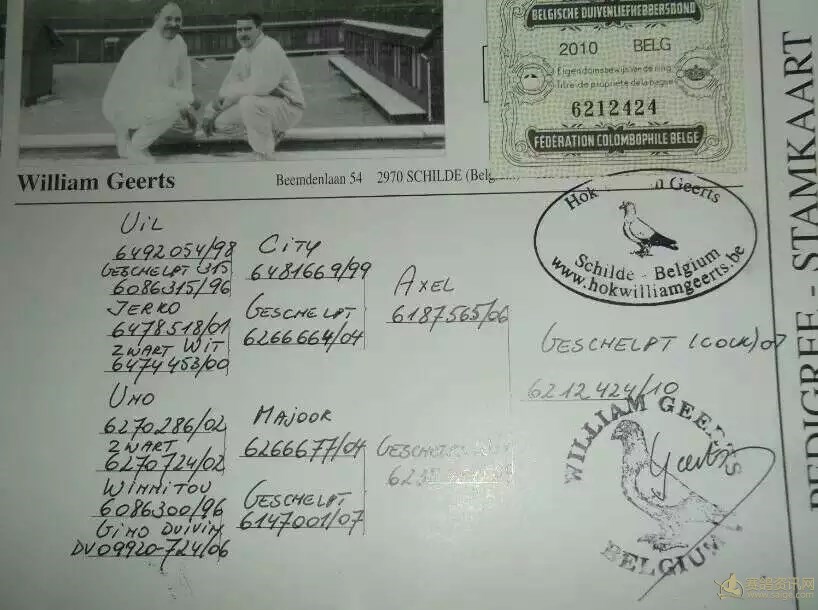 BELGISCHE DUIVENLIEFHEBBERSBOND
2010 BELG
Eigendomsbewijs van de ring
Titre de propriété de la bague
6212424
FÉDÉRATION COLOMBOPHILE BELGE
William Geerts
Beemdenlaan 54 2970 SCHILDE
Hok Geerts
Schilde - Belgium
www.hokwilliamgeerts.be
PEDIGREE - STAMKAART
UIL
6492054/98
GESCHELPT 315
6086315/96
JERKO
6478518/01
ZWART WIT
6474453/00
UNO
6270286/02
ZWART
6270724/02
WINNITOU
6086300/96
GINO DUIVIN
DV09920-724/06
CITY
6481669/99
GESCHELPT
6266664/04
MAJOOR
6266677/04
GESCHELPT
6147001/07
AXEL
6187565/06
GESCHELPT (COCK)
6212424/10
WILLIAM GEERTS
BELGIUM
赛鸽资讯网
www.saige.com